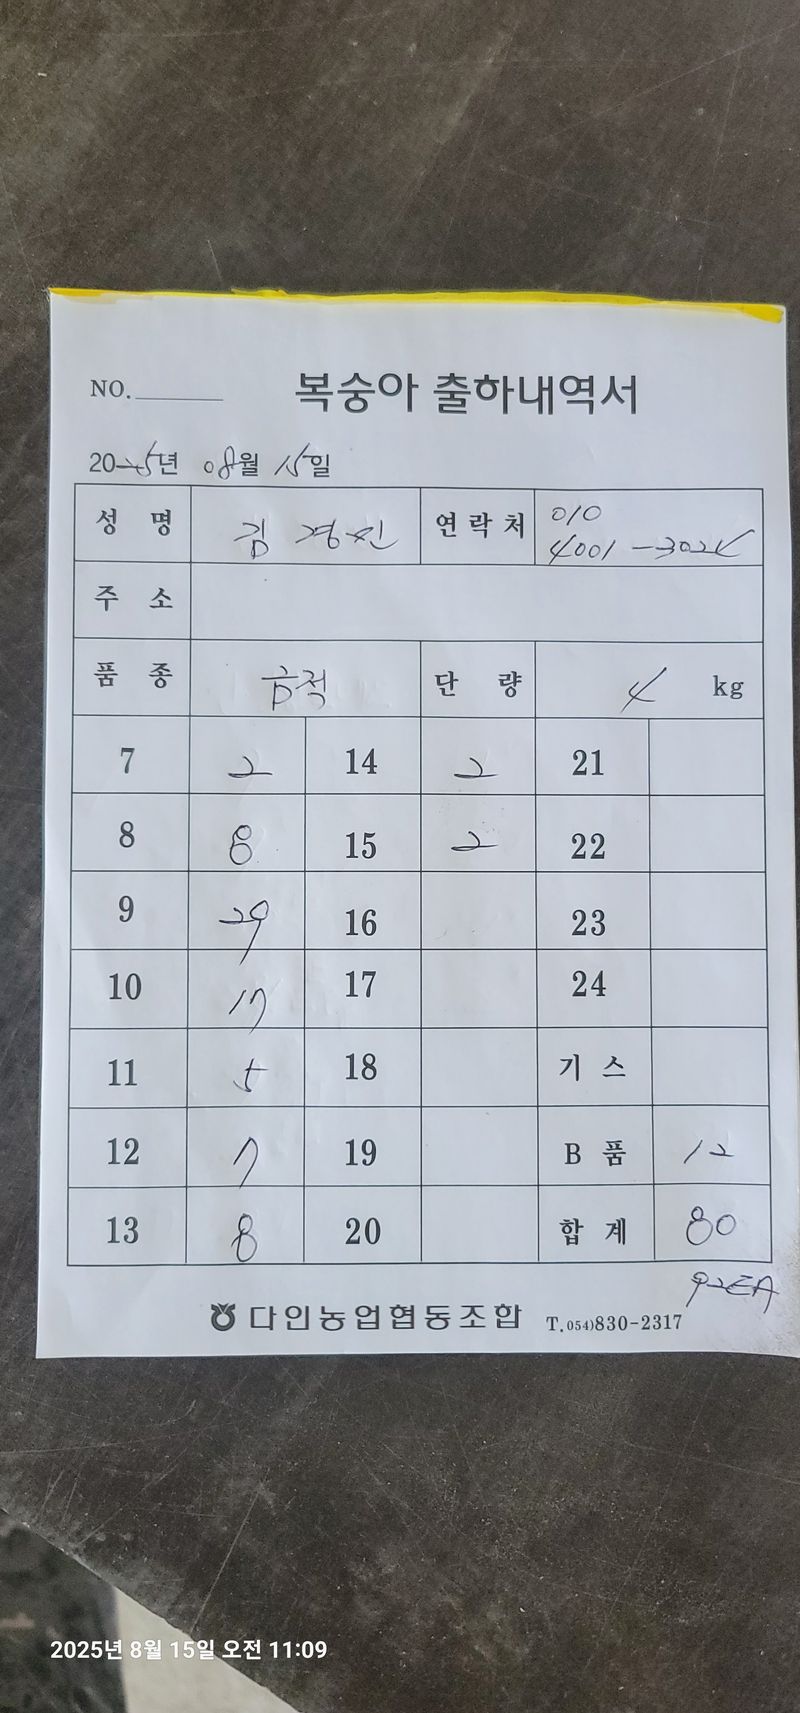 NO.
복숭아 출하내역서
2025년 08월 15일
성 명 김 경민 연락처 010
4001-302
주 소
품 종 단 량 4 kg
7 2 14 2 21
8 8 15 2 22
9 29 16 23
10 17 17 24
11 5 18 기 스
12 7 19 B 품 12
13 8 20 합 계 80
92EA
다인농업협동조합 T.054)830-2317
2025년 8월 15일 오전 11:09